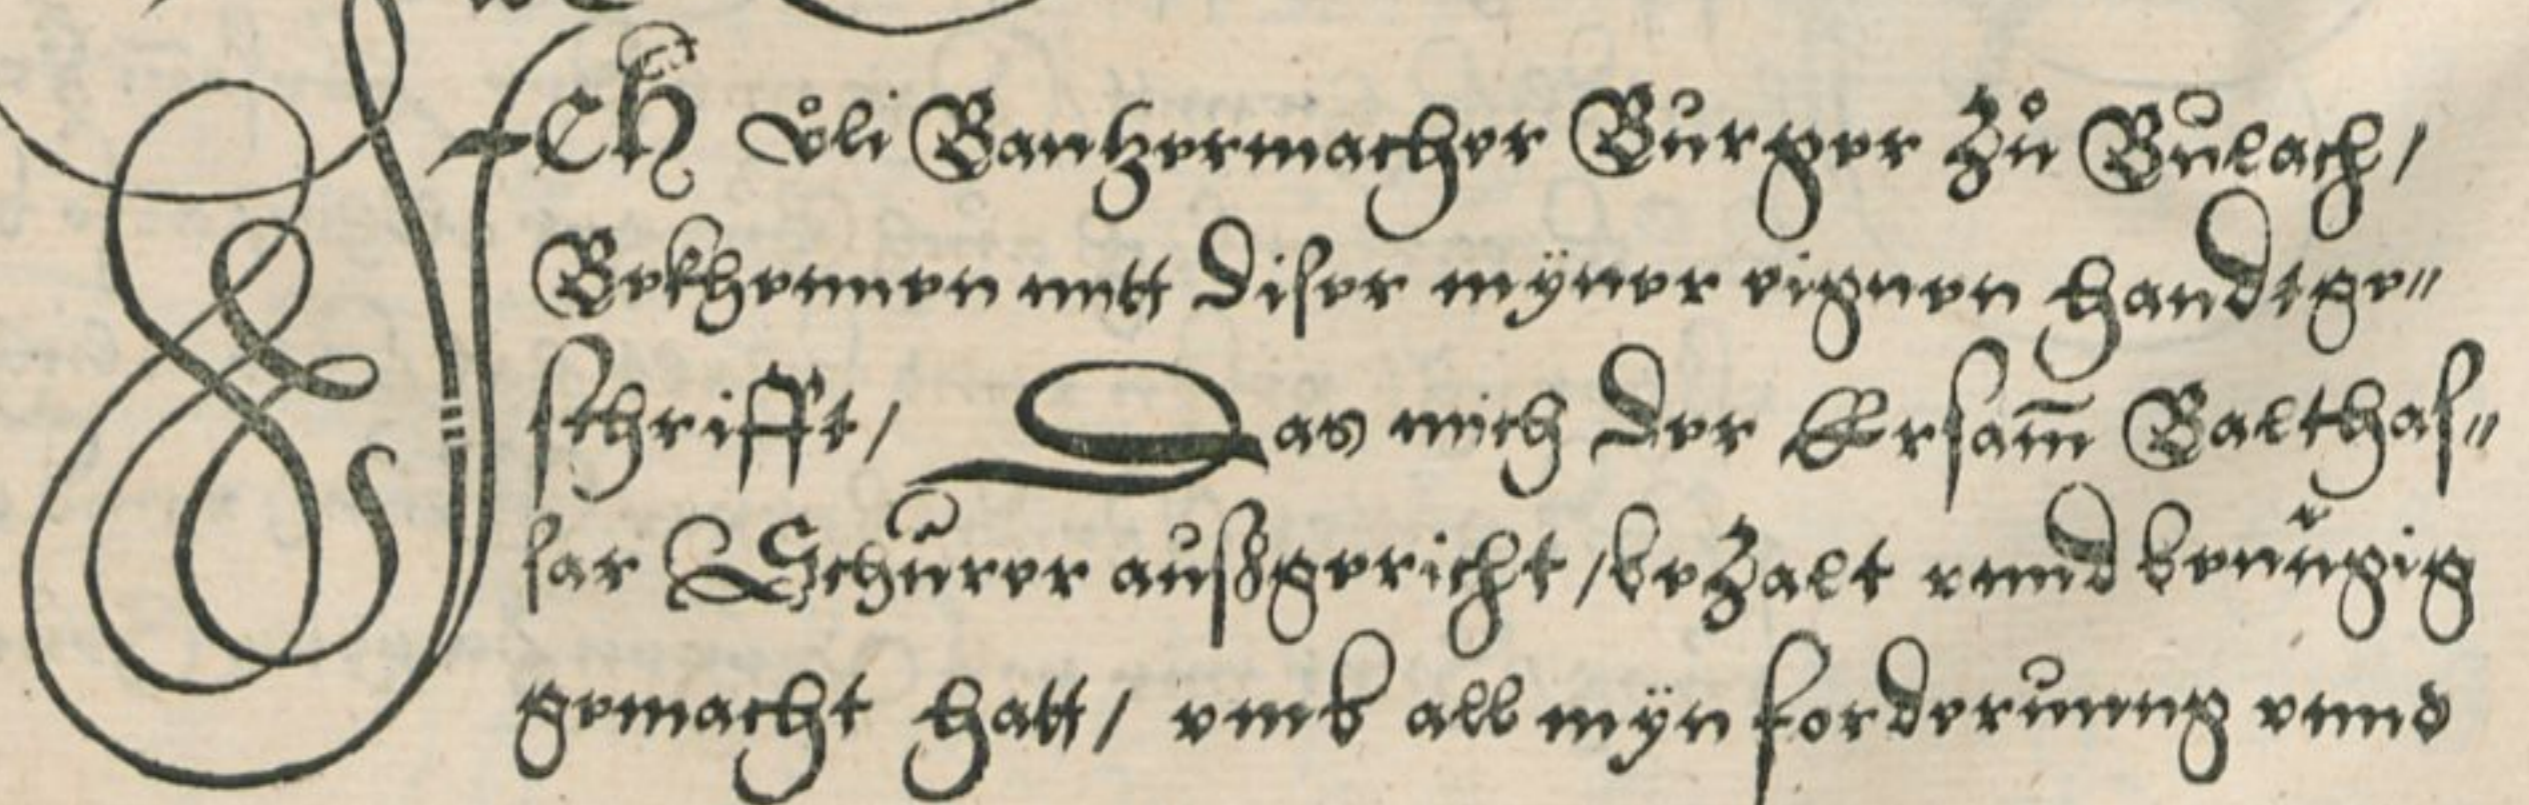 Ich Vͦli Bantzermacher Burger zuͦ Buͤlach /
Bekhennen mitt diser mÿner eignen handtge⸗
schrifft / Das mich der Ersam̄ Balthas⸗
sar Schürer außgericht / bezalt vnnd benuͤgig
gemacht hatt / vmb all mÿn forderunng vnnd